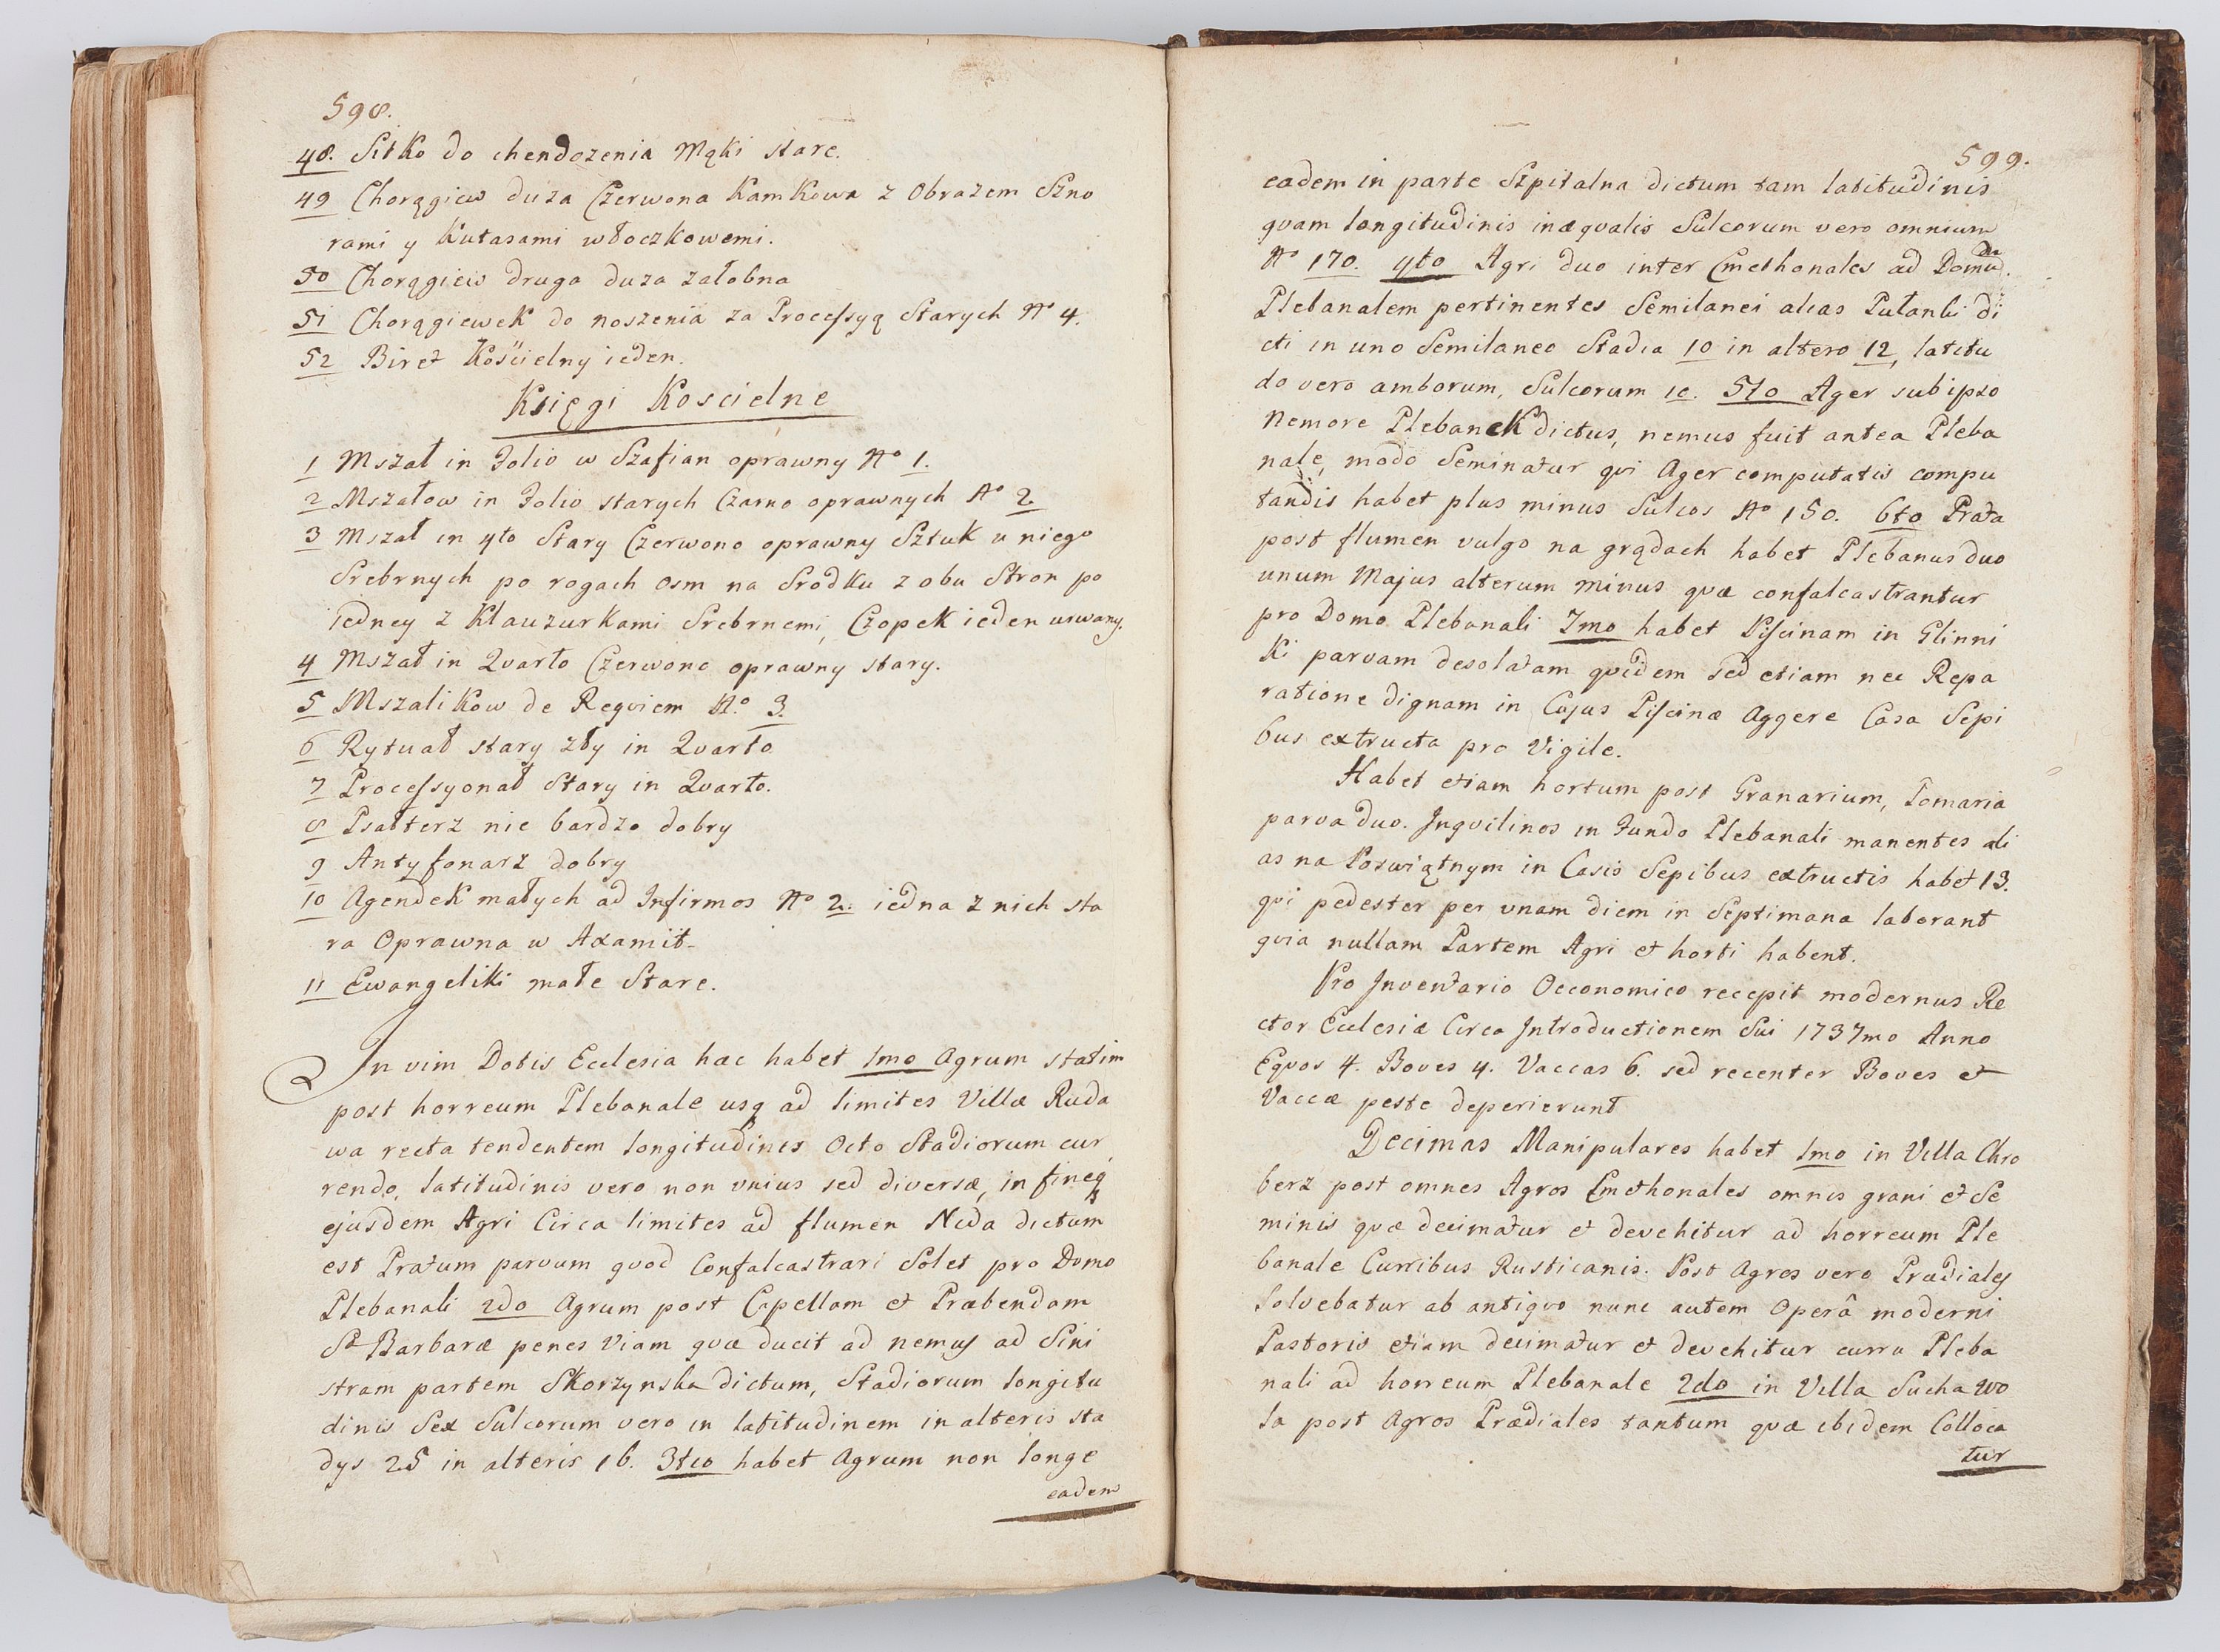 598.
48. Sitko do chendozenia Mąki stare.
49 Chorągiew duza Czerwona KamKowa z Obrazem Szno
rami y Kutasami włoczkowemi.
50 Chorągiew druga duza załobna
51 Chorągiewek do noszenia za Processyą Starych No 4.
52 Biret Kościelny ieden.
Księgi Koscielne
1 Mszał in Folio w Szafian oprawny No 1.
2 Mszałow in Folio starych Czarno oprawnych No 2
3 Mszał in 4to Stary Czerwono oprawny Sztuk u niego
Srebrnych po rogach osm na Srodku z obu Stron po
iedney z Klauzurkami Srebrnemi, Czopek ieden urwany.
4 Mszał in Qvarto Czerwono oprawny stary.
5 Mszalikow de Reqviem No. 3.
6 Rytuał stary zły in Qvarto
7 Processyonał Stary in Qvarto.
8 Psałterz nie bardzo dobry
9 Antyfonarz dobry
10 Agendek małych ad Infirmos No 2. iedna z nich sta
ra Oprawna w Axamit-
11 Ewangeliki małe Stare.
In vim Dotis Ecclesia hac habet 1mo Agrum statim
post horreum Plebanale usq ad limites Villæ Ruda
wa recta tendentem longitudinis Octo Stadiorum cur
rendo, latitudinis vero non unius sed diversæ, in fineq
ejusdem Agri Circa limites ad flumen Nida dictum
est Pratum parvum qvod Confalcastrari Solet pro Domo
Plebanali 2do Agrum post Capellam et Præbendam
St Barbaræ penes Viam qvæ ducit ad nemus ad Sini
stram partem Skorzynska dictum, Stadiorum longitu
dinis Sex Sulcorum vero in latitudinem in alteris sta
dys 25 in alteris 16. 3tio habet Agrum non longe
eadem
599.
eadem in parte Szpitalna dictum tam latitudinis
qvam longitudinis inæqvalis Sulcorum vero omnium
No 170. 4to Agri duo inter Cmethonales ad Domũ
Plebanalem pertinentes Semilanei alias Pułanki di
cti in uno Semilaneo Stadia 10 in altero 12, latitu
do vero amborum, Sulcorum 10. 5to Ager sub ipso
Nemore PlebaneK dictus, nemus fuit antea Pleba
nale, modo Seminatur qvi Ager computatis compu
tandis habet plus minus Sulcos No 150. 6to Prata
post flumen vulgo na grądach habet Plebanus duo
unum Majus alterum minus qvæ confalcastrantur
pro Domo Plebanali 7mo habet Piscinam in Glinni
Ki parvam desolatam qvidem sed etiam nec Repa
ratione dignam in Cujus Piscinæ Aggere Casa Sepi
bus extructa pro Vigile.
Habet etiam hortum post Granarium, Pomaria
parva duo. Inqvilinos in Fundo Plebanali manentes ali
as na Poswiątnym in Casis Sepibus extructis habet 13.
qvi pedester per unam diem in Septimana laborant
qvia nullam Partem Agri et horti habent.
Pro Inventario Oeconomico recepit modernus Re
ctor Ecclesiæ Circa Introductionem Sui 1737mo Anno
Eqvos 4. Boves 4. Vaccas 6. sed recenter Boves et
Vaccæ peste deperierunt
Decimas Manipulares habet 1mo in Villa Chro
berz post omnes Agros Cmethonales omnis grani et Se
minis qvæ decimatur et devehitur ad horreum Ple
banale Curribus Rusticanis. Post Agros vero Prædiales
Solvebatur ab antiqvo nunc autem Operâ moderni
Pastoris etiam decimatur et devehitur curru Pleba
nali ad horreum Plebanale 2do in Villa Sucha Wo
la post Agros Prædiales tantum qvæ ibidem Colloca
tur